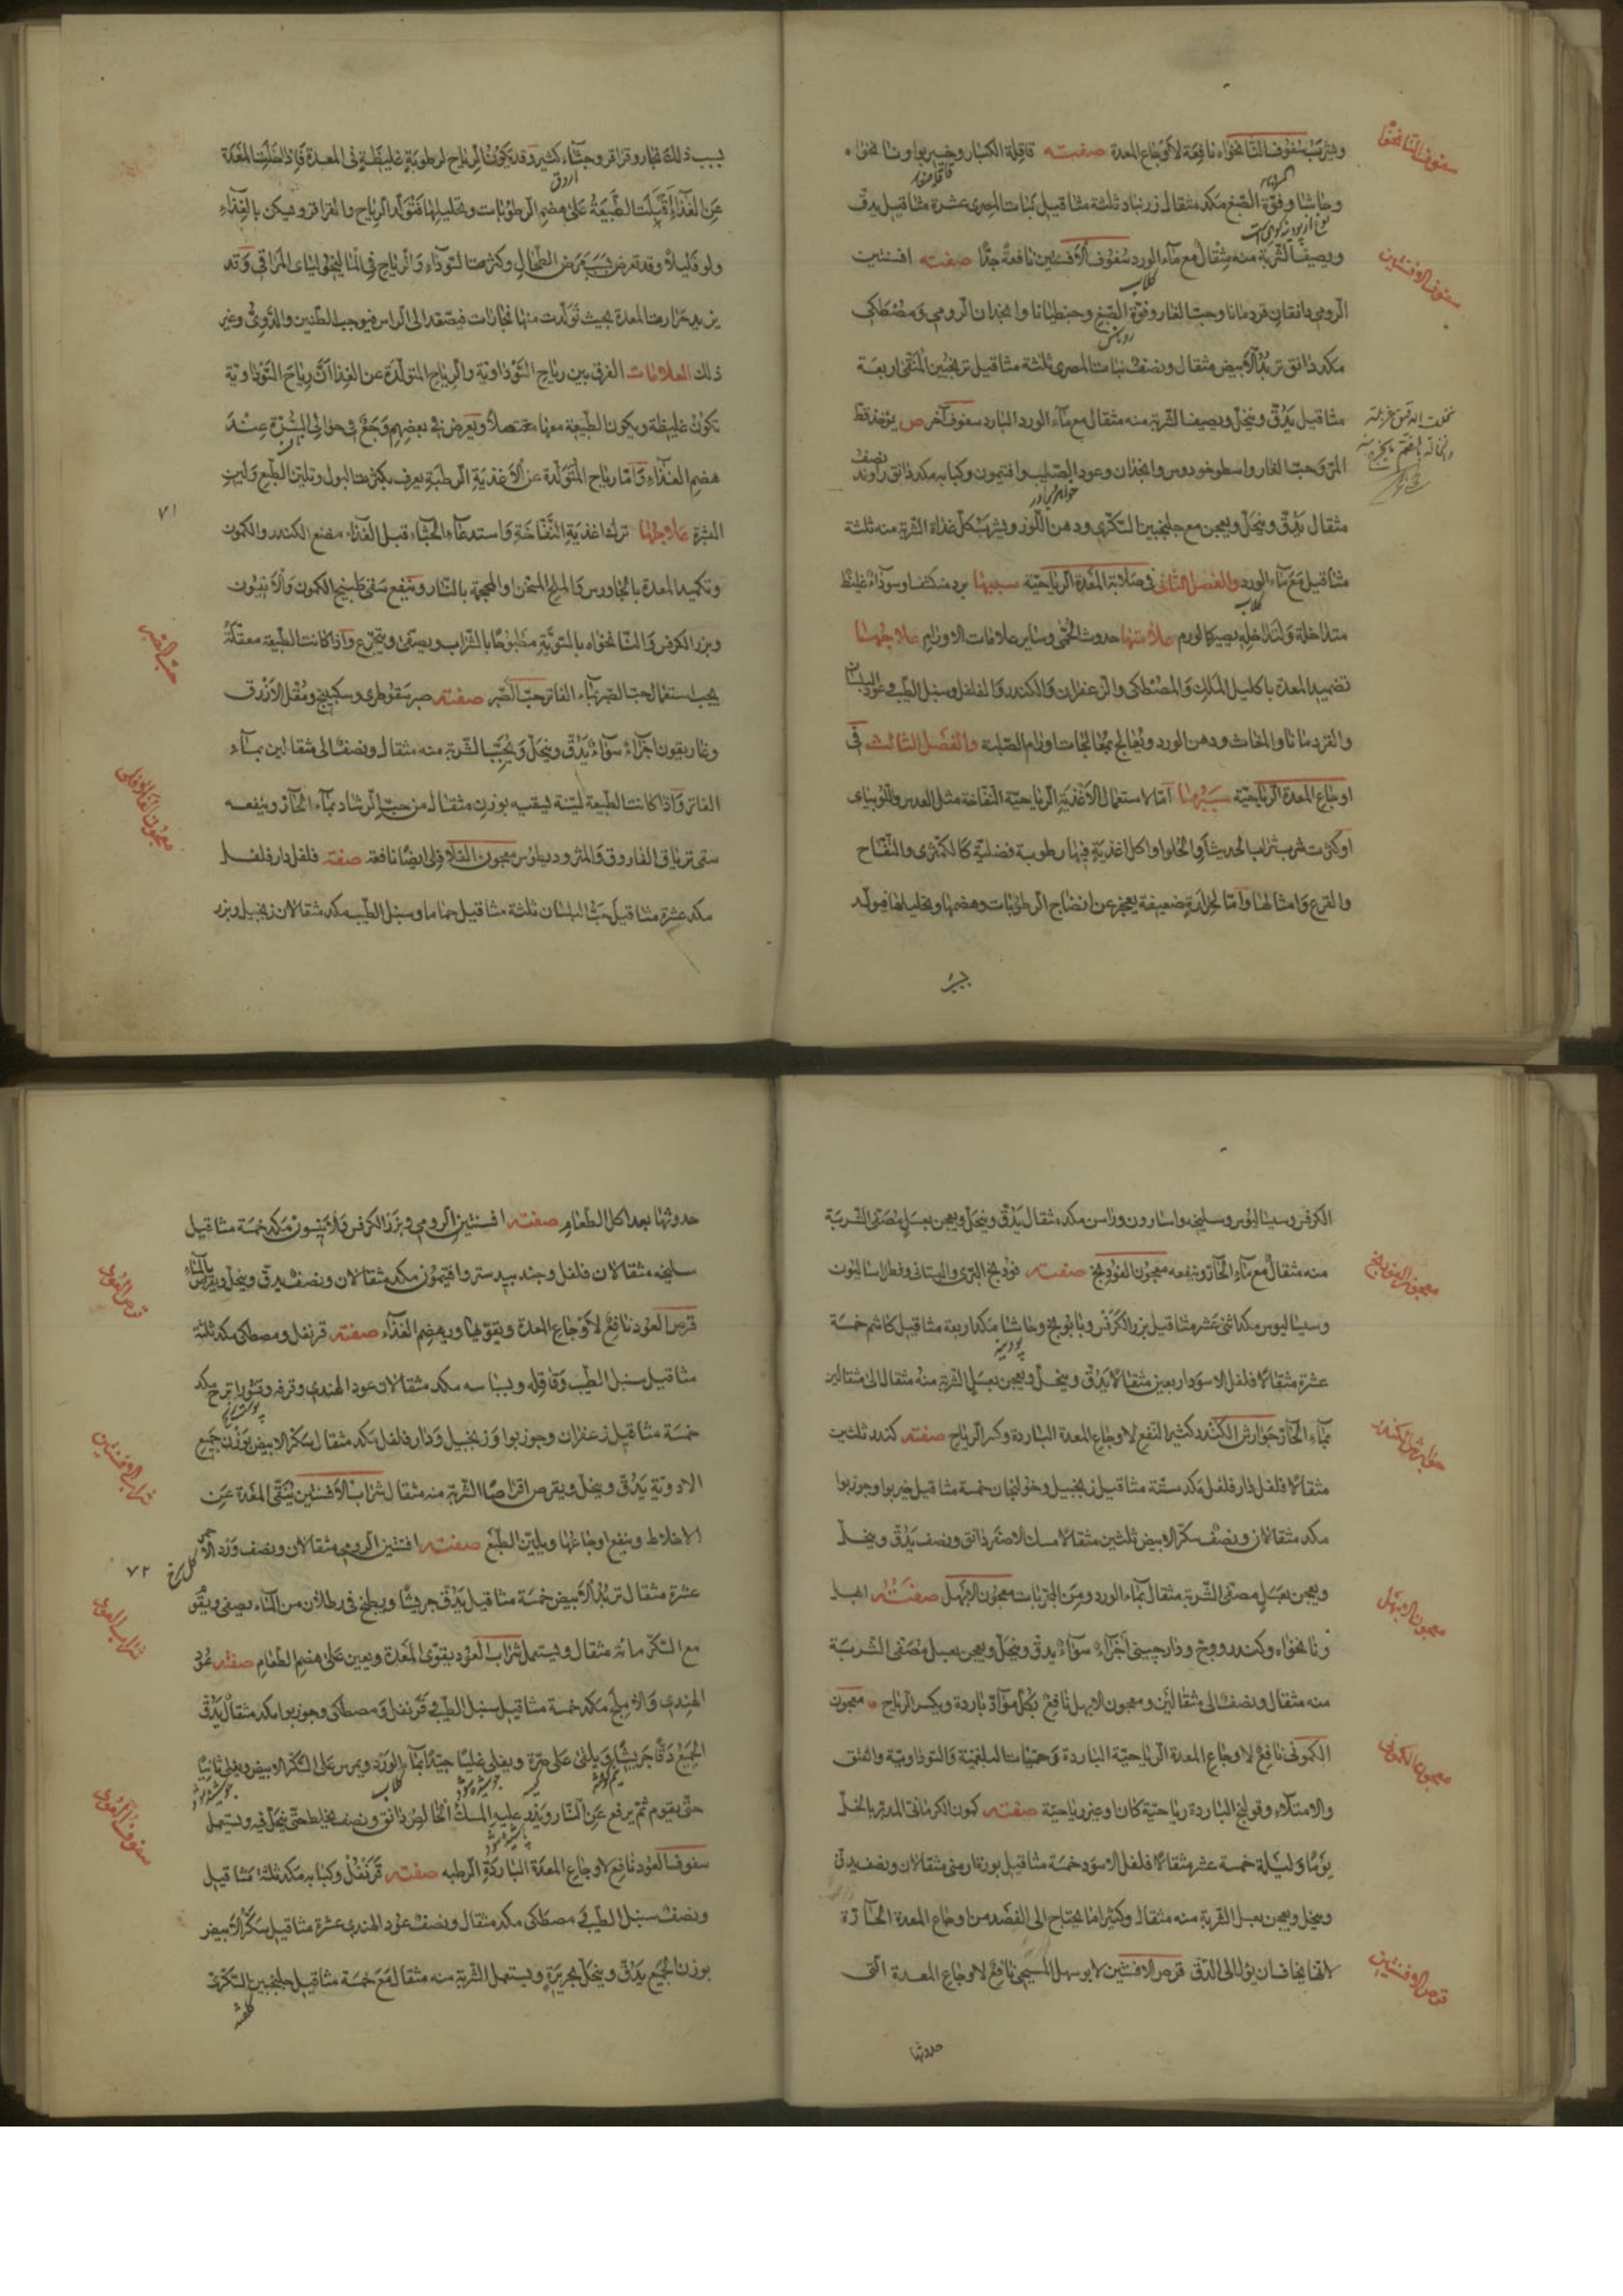 ويشرب سفوف النانخواه نافعة لاوجاع المعدة صفته قاقلة الكبار وخيربوا ونانخواه
وحاشا وفوة الصبغ مكد مثقال زرنباد ثلثة مثاقيل نبات المصري عشرة مثاقيل يدق
ويصيف الشربة منه مثقال مع ماء الورد سفوف الافسنتين نافعة جدًا صفته افسنتين
الرومي دانقان قردمانا وحب الغار وفوة الصبغ وجنطيانا وانجدان الرومي ومصطكى
مكد دانق تربد الابيض مثقال ونصف نبات المصري ثلثة مثاقيل ترنجبين المنقى اربعة
مثاقيل يدق وينخل ويصيف الشربة منه مثقال مع ماء الورد البارد سفوف آخر ص يؤخذ قسط
المر وحب الغار واسطوخودوس وانجدان وعود الصليب وافتيمون وكبابه مكد دانق راوند نصف
مثقال يدق وينخل ويعجن مع جلنجبين السكري ودهن اللوز ويشرب كل غداة الشربة منه ثلثة
مثاقيل مع ماء الورد والفصل الثاني في صلابة المعدة الرياحية سببها برد منكثف او سوداء غليظ
متداخلة ولتداخله يصير كالورم علامتها حدوث الحمى وساير علامات الاورام علاجها
تضميد المعدة باكليل الملك والمصطكى والزعفران والكندر والفلفل وسنبل الطيب وعود البلسان
والقردمانا والمغاث ودهن الورد ويعالج بمعالجات اورام الصلبة والفصل الثالث في
اوجاع المعدة الرياحية سببها اما لاستعمال الاغذية الرياحية النفاخة مثل العدس واللوبياى
او كثرت شرب شراب الحديث او الحلوا او اكل اغذية فيها رطوبة فضلية كالكمثرى والتفاح
والقرع وامثالها واما لحرارة ضعيفة يعجز عن انضاج الرطوبات وهضمها وتحليلها فيولد
سفوف النانخواه
سفوف الافسنتين
بسبب ذلك بخار وقراقر وجشاء كثير وقد يكون الرياح لرطوبة غليظة في المعدة فاذا خلت المعدة
عن الغذاء اقبلت الطبيعة على هضم الرطوبات وتحليلها فتولد الرياح والقراقر وفيكن بالغذاء
ولو قليلاً وقد تعرض بسبب مرض الطحال وكثرت السوداء والرياح في الماليخوليای المراقى وقد
يزيد حرارت المعدة بحيث تولدت منها بخارات فيصعد الى الراس فيوجب الطنين والدوى وغير
ذلك العلامات الفرق بين رياح السوداوية والرياح المتولدة عن الغذا ان رياح السوداوية
تكون غليظة ويكون الطبيعة معها معتصلا ويعرض في بعضهم وجع في حوالى السرة عند
هضم الغذاء واما رياح المتولدة عن الاغذية الرطبة يعرف بكثرت البول وتلين الطبع ولين
السرة علاجها ترك اغذية النفاخة واستدعاء الجشاء قبل الغذاء مضغ الكندر والكمون
وتكميد المعدة بالجاورس والملح المسخن والمحجمة بالنار وينفع سقى طبيخ الكمون والانيسون
وبزر الكرفس والنانخواه بالسوية مطبوخا بالشراب ويصفى ويتجرع واذا كانت الطبيعة معتقلة
يجب استعمال حب الصبر بماء الفاتر حب الصبر صفته صبر سقوطرى وسكبينج ومقل الازرق
وغاريقون اجزاء سواء يدق وينخل ويحبب الشربة منه مثقال ونصف الى مثقالين بماء
الفاتر واذا كانت الطبيعة لينة ليسقيه بوزن مثقال من حب الرشاد بماء الحار وينفعه
سقى ترياق الفاروق والمثروديطوس معجون الفلافلى ايضا نافعة صفته فلفل دار فلفل
مكد عشرة مثاقيل حب البلسان ثلثة مثاقيل حماما وسنبل الطيب مكد مثقالان زنجبيل وبزر
٧١
حب الصبر
معجون الفلافلى
الكرفس وسيساليوس وسليخه واسارون وراسن مكد مثقال يدق وينخل ويعجن بعسل مصفى الشربة
منه مثقال مع ماء الحار وينفعه معجون الفودنج صفته فودنج البرى والبستانى وفطراساليون
وسيساليوس مكد اثنى عشر مثاقيل بزر الكرفس وبابونج وحاشا مكد اربعة مثاقيل كاشم خمسة
عشرة مثقالا فلفل الاسود اربعين مثقالا يدق وينخل ويعجن بعسل الشربة منه مثقال الى مثقالين
بماء الحار جوارش الكندر كثير النفع لاوجاع المعدة الباردة وكسر الرياح صفته كندر ثلثين
مثقالا فلفل دار فلفل مكد ستة مثاقيل زنجبيل وخولنجان خمسة مثاقيل خيربوا وجوزبوا
مكد مثقالان ونصف سكر الابيض ثلثين مثقالا مسك الاصفر دانق ونصف يدق وينخل
ويعجن بعسل مصفى الشربة مثقال بماء الورد ومن المجربات معجون الابهل صفته ابهل
ونانخواه وكندر ووج ودارچينى اجزاء سواء يدق وينخل ويعجن بعسل مصفى الشربة
منه مثقال ونصف الى مثقالين ومعجون الابهل نافع بكل مواد باردة ويكسر الرياح معجون
الكمونى نافع لاوجاع المعدة الرياحية الباردة وحميات البلغمية والسوداوية والفتق
والامتلاء وقولنج الباردة رياحية كان او غير رياحية صفته كمون الكرمانى المدبر بالخل
يوما وليلة خمسة عشر مثقالا فلفل الاسود خمسة مثاقيل بورة ارمنى مثقالان ونصف يدق
وينخل ويعجن بعسل الشربة منه مثقال وكثيرا ما يحتاج الى الفصد من اوجاع المعدة الحارة
لانها يخاف ان يؤل الى الدق قرص الافسنتين لابو سهل المسيحى نافع لاوجاع المعدة التى
حدوثها
معجون الفودنج
جوارش الكندر
معجون الابهل
معجون الكمونى
قرص الافسنتين
حدوثها بعد اكل الطعام صفته افسنتين الرومى وبزر الكرفس والانيسون مكد خمسة مثاقيل
سليخه مثقالان فلفل وجندبيدستر وافتيمون مكد مثقالان ونصف يدق وينخل ويقرص بالماء
قرص العود نافع لاوجاع المعدة ويقويها ويهضم الغذاء صفته قرنفل ومصطكى مكد ثلثة
مثاقيل سنبل الطيب وقاقله وبسباسه مكد مثقالان عود الهندى وقرفه وقشور اترج مكد
خمسة مثاقيل زعفران وجوزبوا وزنجبيل ودار فلفل مكد مثقال سكر الابيض بوزن جميع
الادوية يدق وينخل ويقرص اقراصا الشربة منه مثقال شراب الافسنتين ينقى المعدة عن
الاخلاط وينفع اوجاعها ويلين الطبع صفته افسنتين الرومى مثقالان ونصف ورد الاحمر
عشرة مثقال تربد الابيض خمسة مثاقيل يدق جريشا ويطبخ في رطلان من الماء يصفى ويقو
مع السكر مائة مثقال ويستعمل شراب العود يقوى المعدة ويعين على هضم الطعام صفته عود
الهندى والاملج مكد خمسة مثاقيل سنبل الطيب قرنفل ومصطكى وجوزبوا مكد مثقال يدق
الجميع دقا جريشا ويلقى على صرة ويغلى غليا جيدا بماء الورد ويمرس على السكر الابيض ويغلى ثانيا
حتى يقوم ثم يرفع عن النار ويذر عليه المسك الخالص دانق ونصف يخلط حتى ينحل فيه ويستعمل
سفوف العود نافع لاوجاع المعدة الباردة الرطبه صفته قرنفل وكبابه مكد ثلثة مثاقيل
ونصف سنبل الطيب مصطكى مكد مثقال ونصف عود الهندى عشرة مثاقيل سكر الابيض
بوزن الجميع يدق وينخل بحريرة ويستعمل الشربة منه مثقال مع خمسة مثاقيل جلنجبين السكرى
٧٢
قرص العود
شراب الافسنتين
شراب العود
سفوف العود